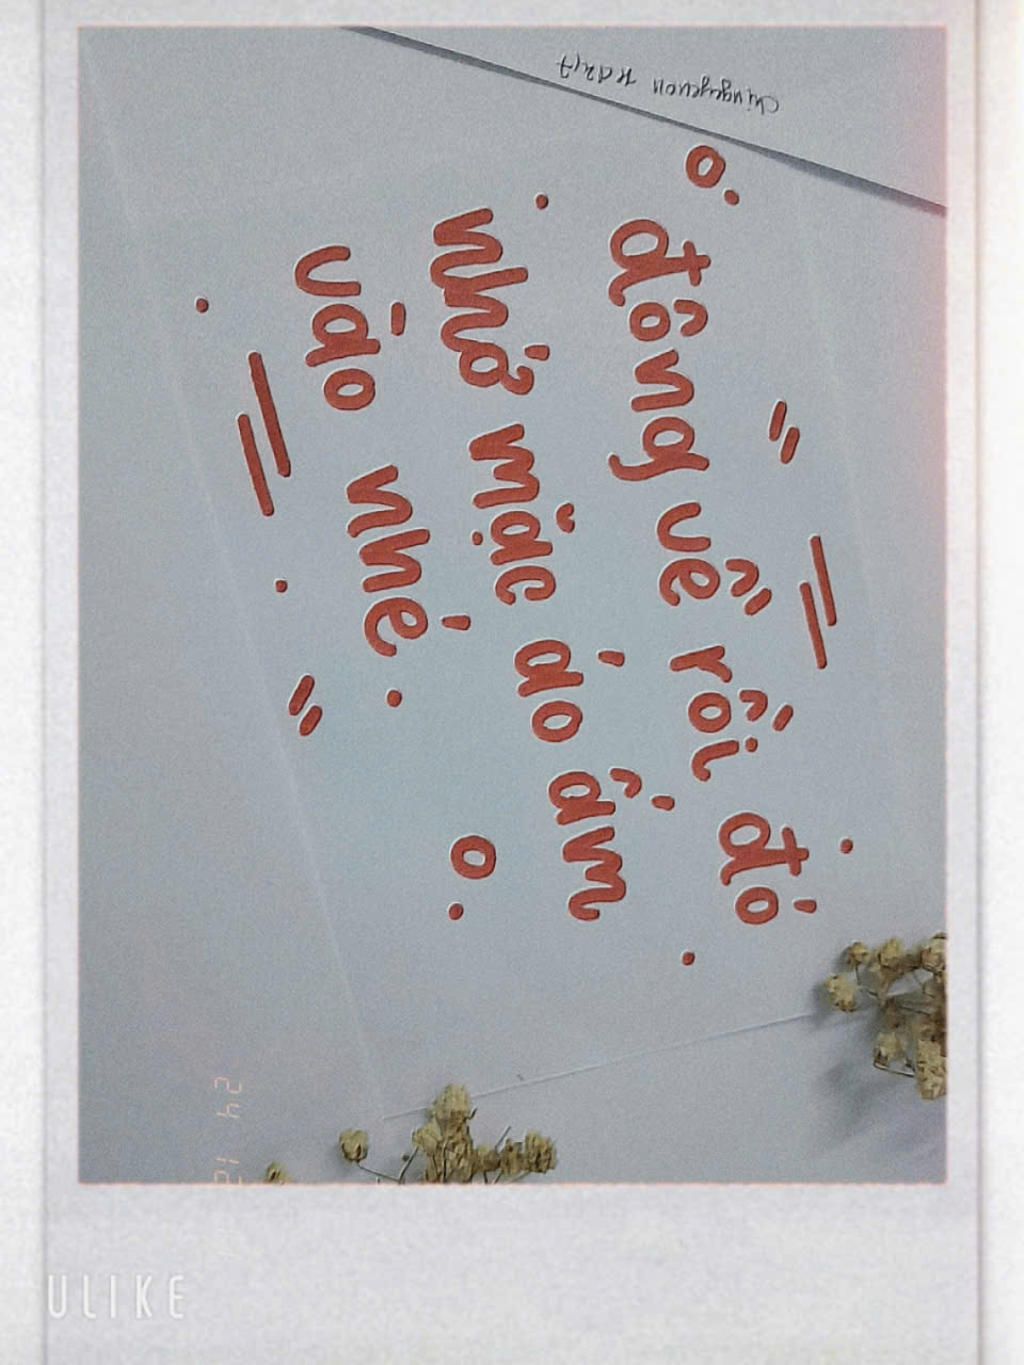 đông về rồi đó
nhớ mặc áo ấm
vào nhé.
24 12
ULIKE